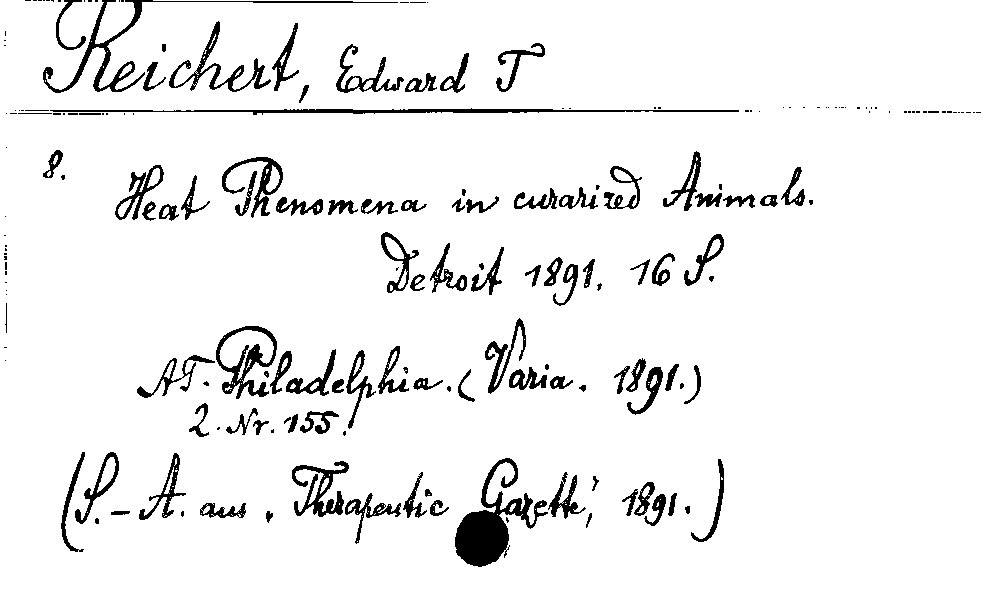 Reichert, Edward T
8.
Heat Phenomena in curarized Animals.
Detroit 1891. 16 S.
AT. Philadelphia. (Varia. 1891.)
2. Nr. 155.
(S.-A. aus „Therapeutic Gazette", 1891.)